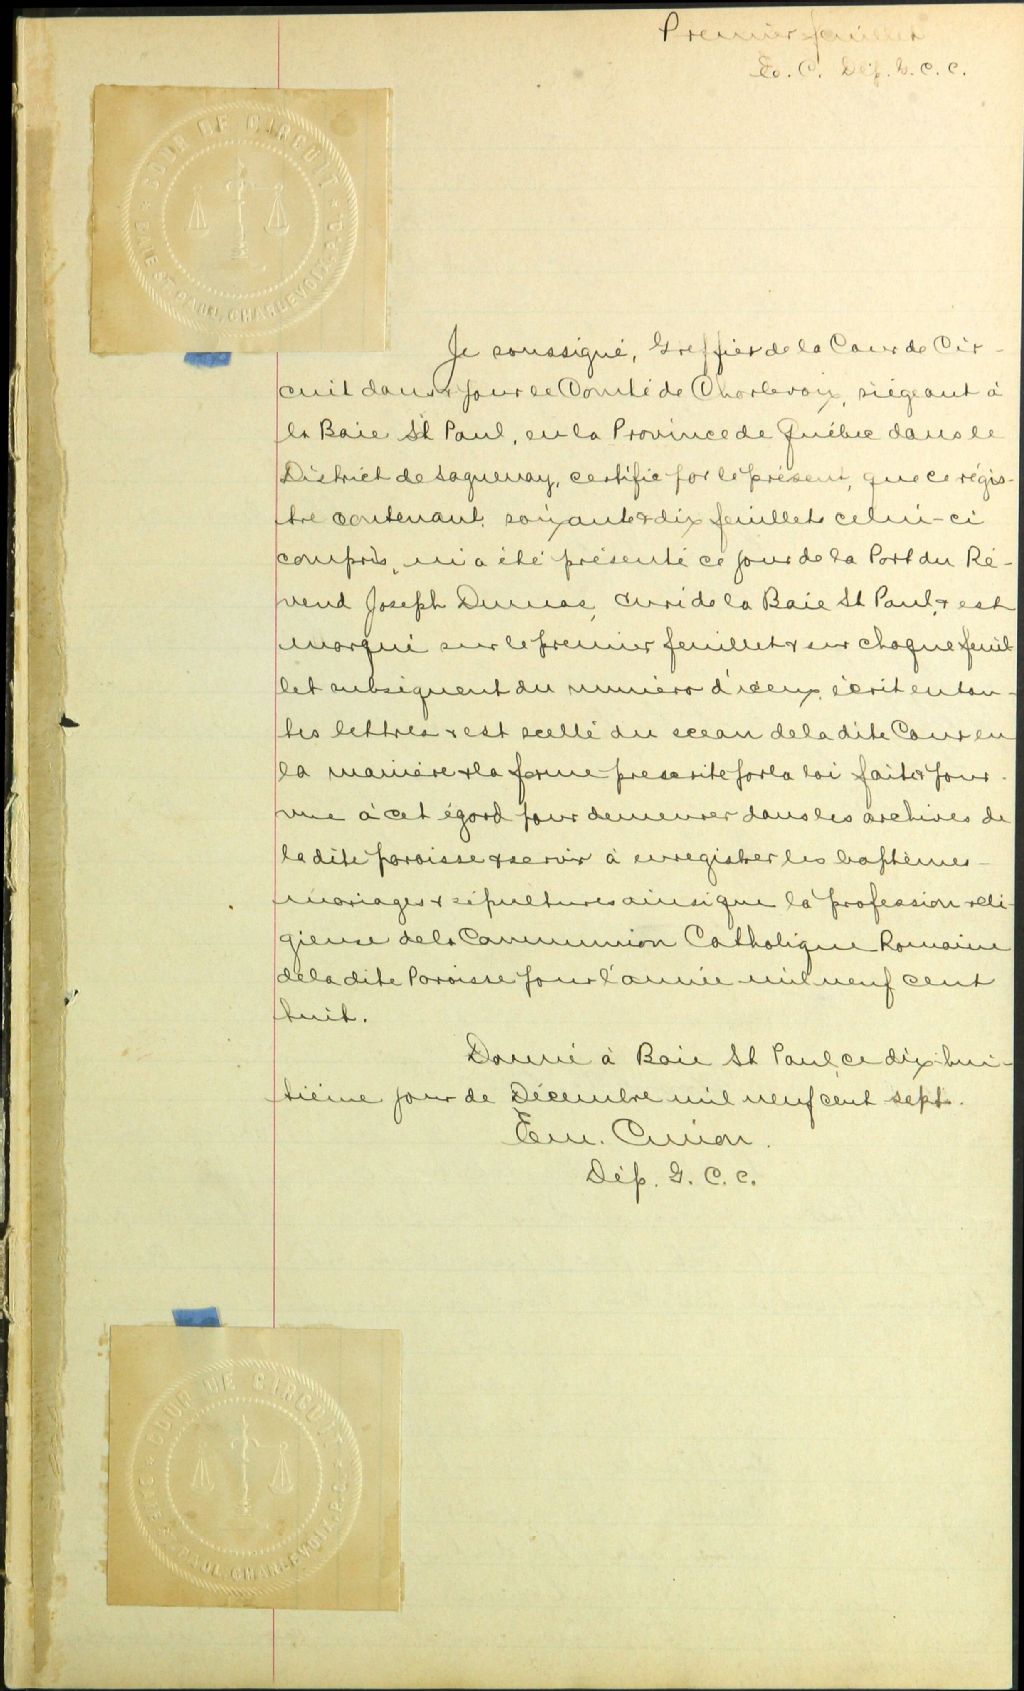 Premier feuillet
Em. C. Dép. G. C. C.
COUR DE CIRCUIT
BAIE ST. PAUL, CHARLEVOIX, P.Q.
Je soussigné, Greffier de la Cour de Cir-
cuit dans & pour le Comté de Charlevoix, siégeant à
la Baie St Paul, en la Province de Québec dans le
District de Saguenay, certifie par le présent, que ce régis-
tre contenant soixante & dix feuillets celui-ci
compris, m'a été présenté ce jour de la Part du Ré-
vend Joseph Dumas, curé de la Baie St Paul, & est
marqué sur le premier feuillet & sur chaque feuil
let subséquent du numéro d'iceux, écrit en tou-
tes lettres & est scellé du sceau de la dite Cour en
la manière & la forme prescrite par la loi faite & pour-
vue à cet égard pour demeurer dans les archives de
la dite paroisse & servir à enregistrer les baptêmes-
mariages & sépultures ainsi que la profession reli-
gieuse de la Communion Catholique Romaine
de la dite Paroisse pour l'année mil neuf cent
huit.
Donné à Baie St Paul, ce dix-hui-
tième jour de Décembre mil neuf cent sept.
Em.
Dép. G. C. C.
COUR DE CIRCUIT
BAIE ST. PAUL, CHARLEVOIX, P.Q.